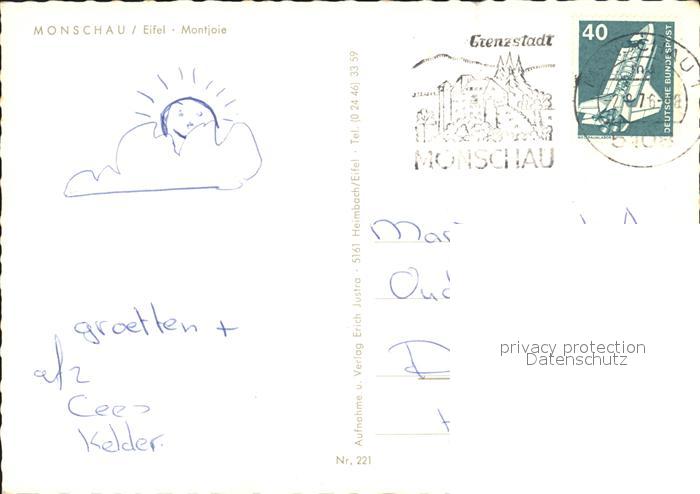 MONSCHAU / Eifel · Montjoie
Grenzstadt
MONSCHAU
40
DEUTSCHE BUNDESPOST
Aufnahme u. Verlag Erich Justra · 5161 Heimbach/Eifel · Tel. (0 24 46) 33 59
groetten +
afz
Cees
Kelder.
Mar
Oud
privacy protection
Datenschutz
Nr. 221